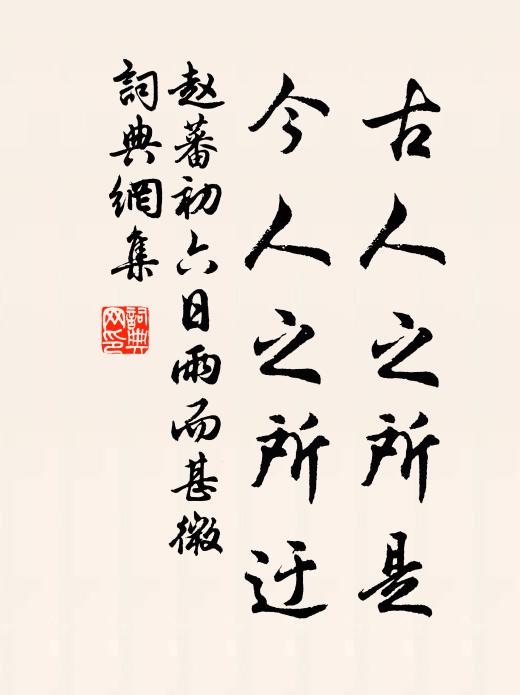 古人之所是
今人之所迂
赵蕃初六日雨而甚微
詞典網集
詞典网印